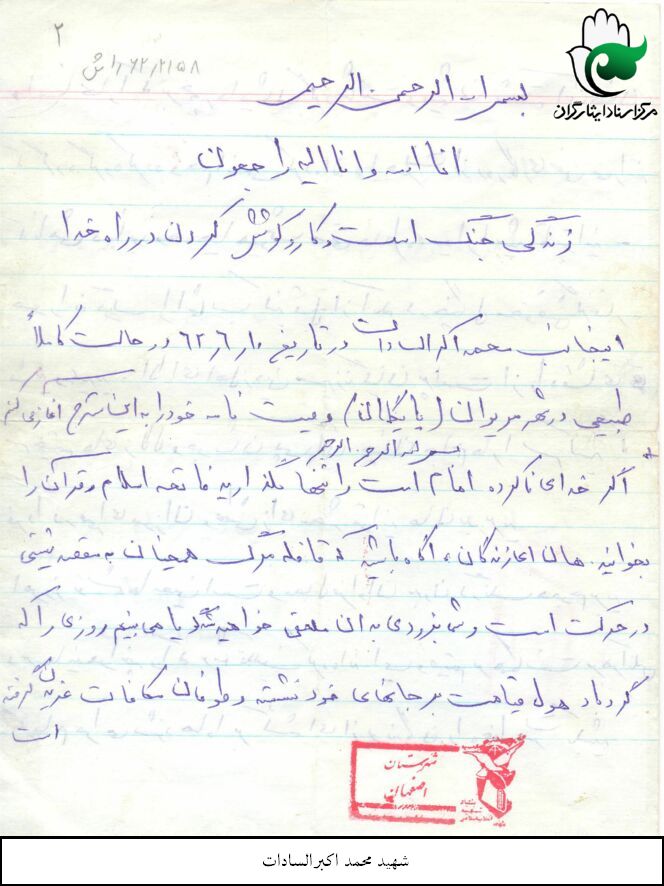 ۲
۶۲٫۲۱۵۸
مرکز اسناد ایثارگران
بسم الله الرحمن الرحیم
انا لله و انا الیه راجعون
زندگی جنگ است و کار و کوشش کردن در راه خدا
اینجانب محمد اکبرالسادات در تاریخ ۶۲٫۶٫۱۰ در حالت کاملاً
طبیعی در شهر مریوان (پایگاه) وصیت نامه خود را به این شرح آغاز می کنم
بسم الله الرحمن الرحیم
اگر خدای ناکرده امام امت را تنها بگذارید فاتحه اسلام و قرآن را
بخوانید. هان ای بازندگان، آگاه باشید که قافله مرگ همچنان به مقصد نیستی
در حرکت است و شما بزودی به آن ملحق خواهید شد گویا می بینم روزی را که
گردباد هول قیامت بر جانهای خود نشسته و طوفان مکافات غریدن گرفته
است
شهرستان
اصفهان
بنیاد
شهید
شهید محمد اکبرالسادات